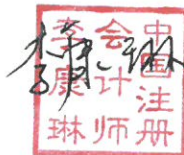 中国注册
会计师
李康琳